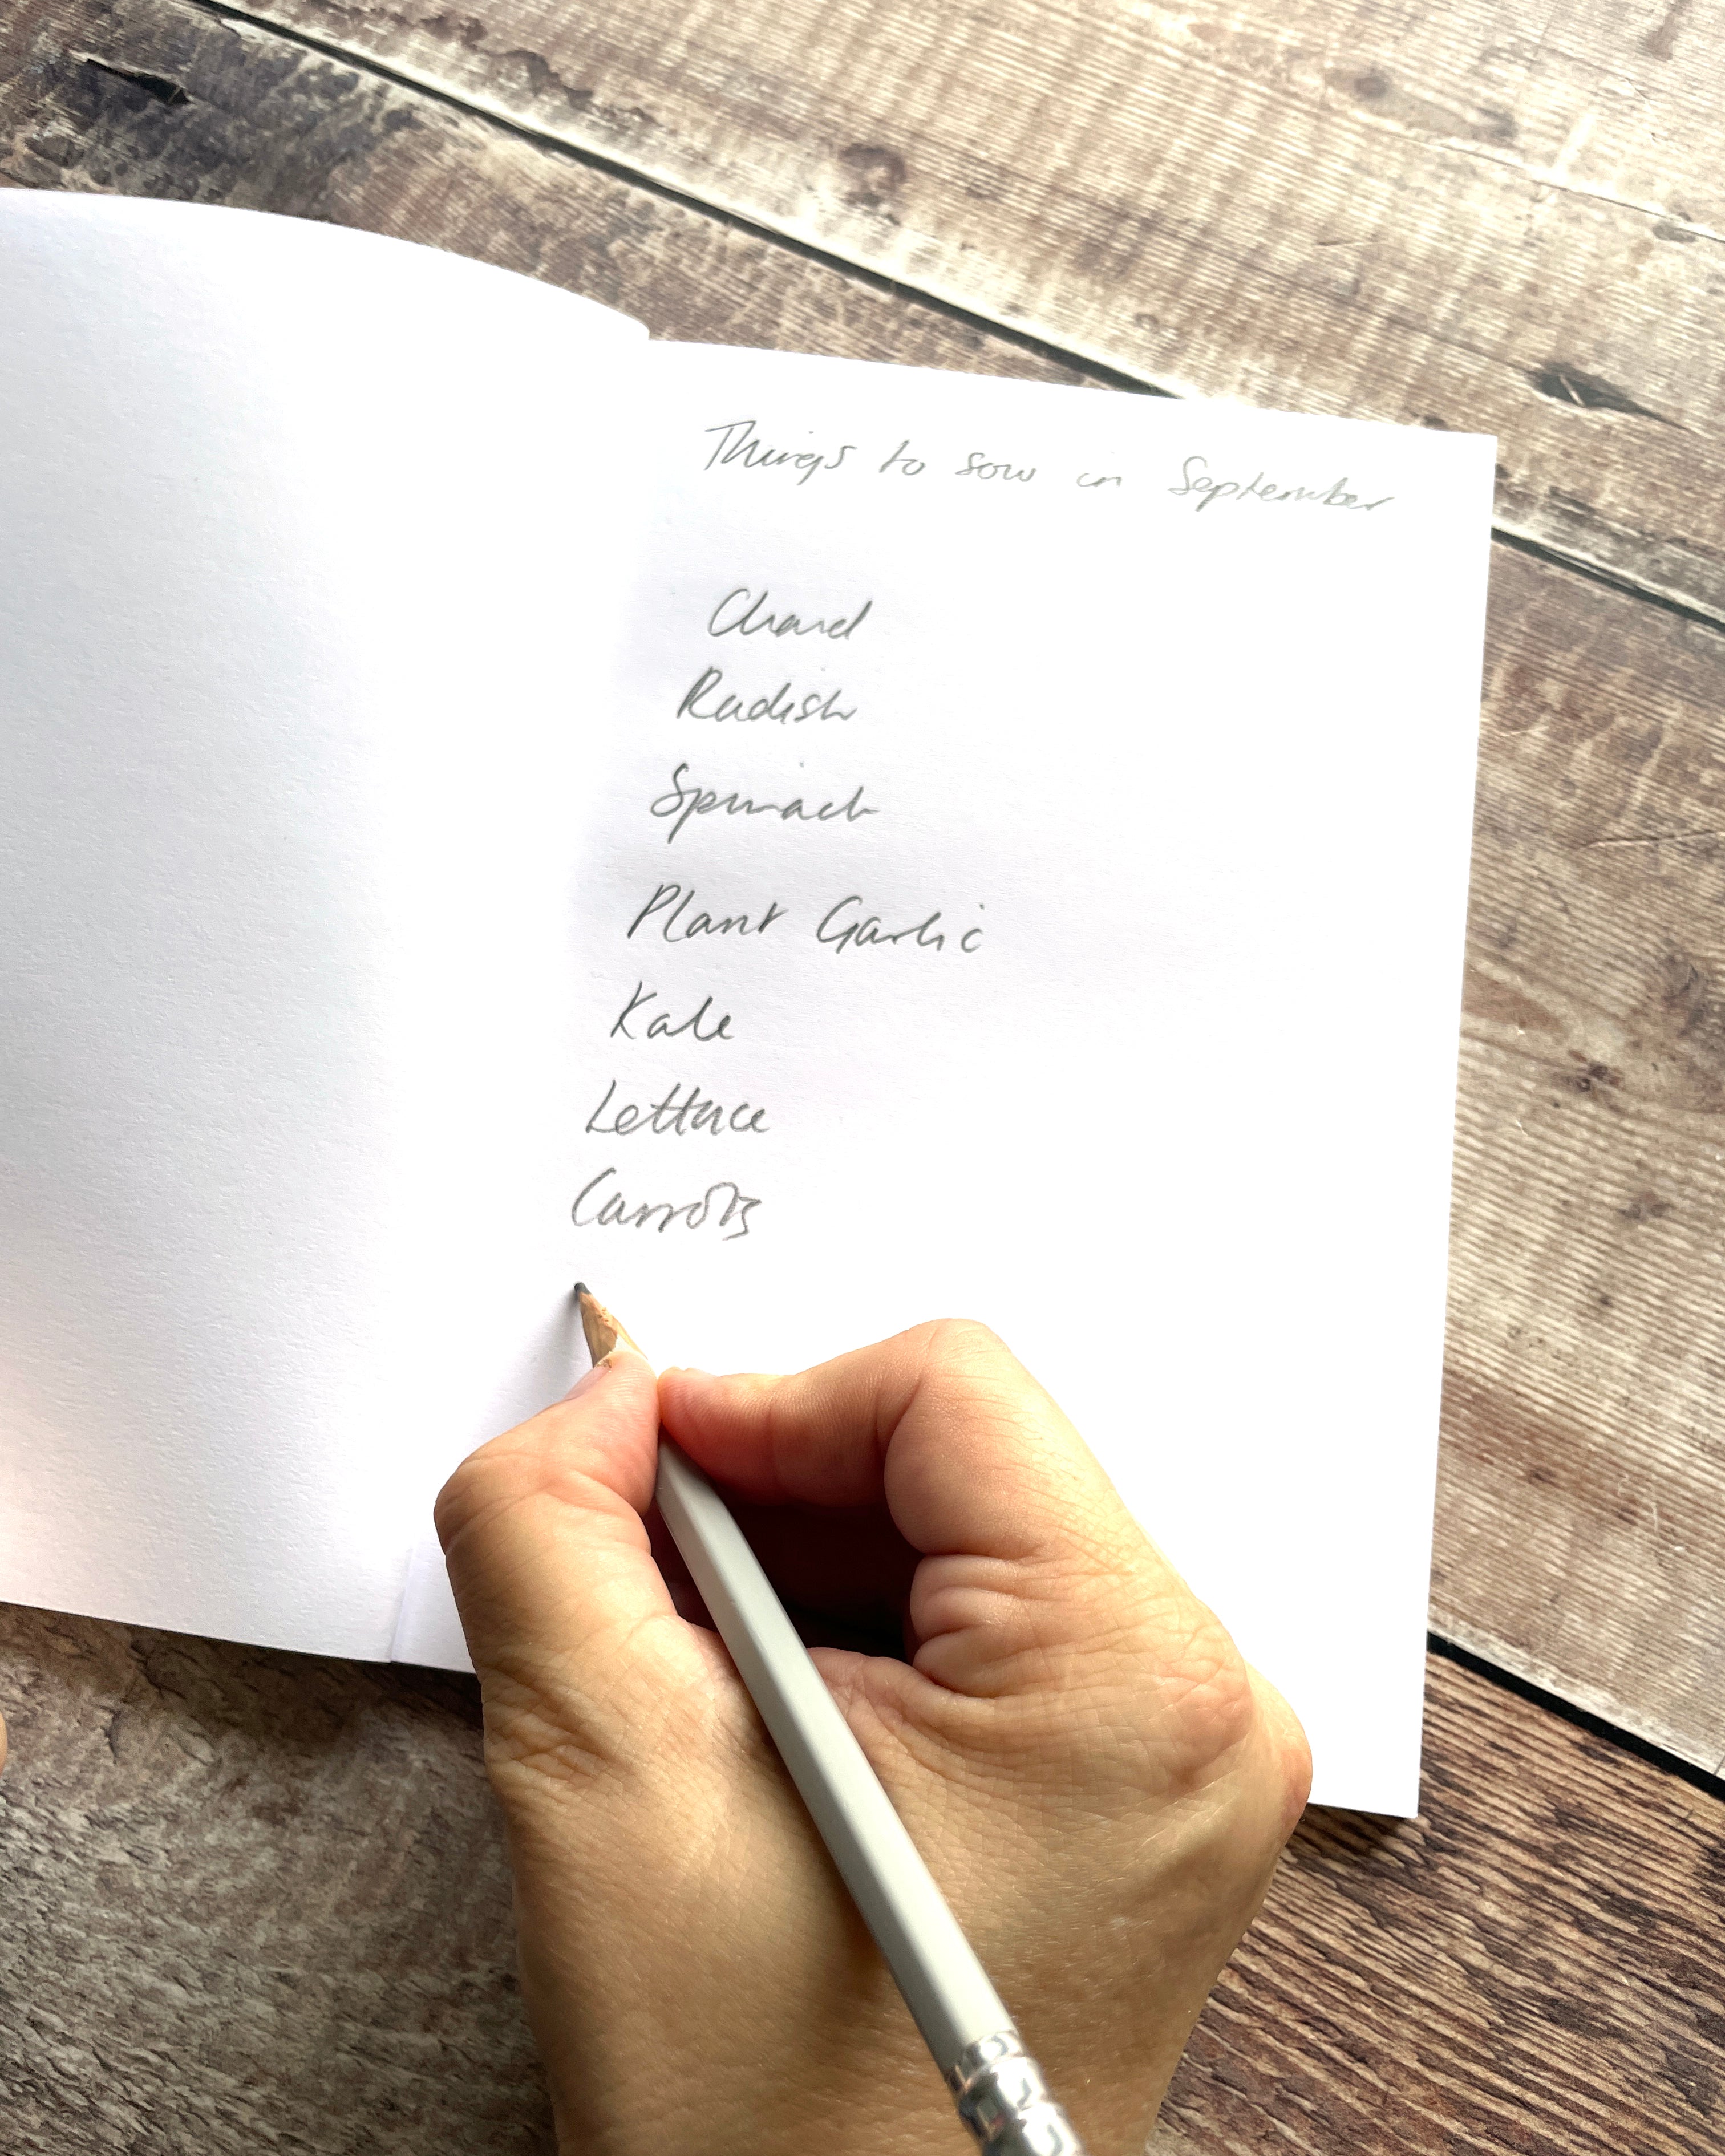 Things to sow in September
Chard
Radish
Spinach
Plant Garlic
Kale
Lettuce
Carrots